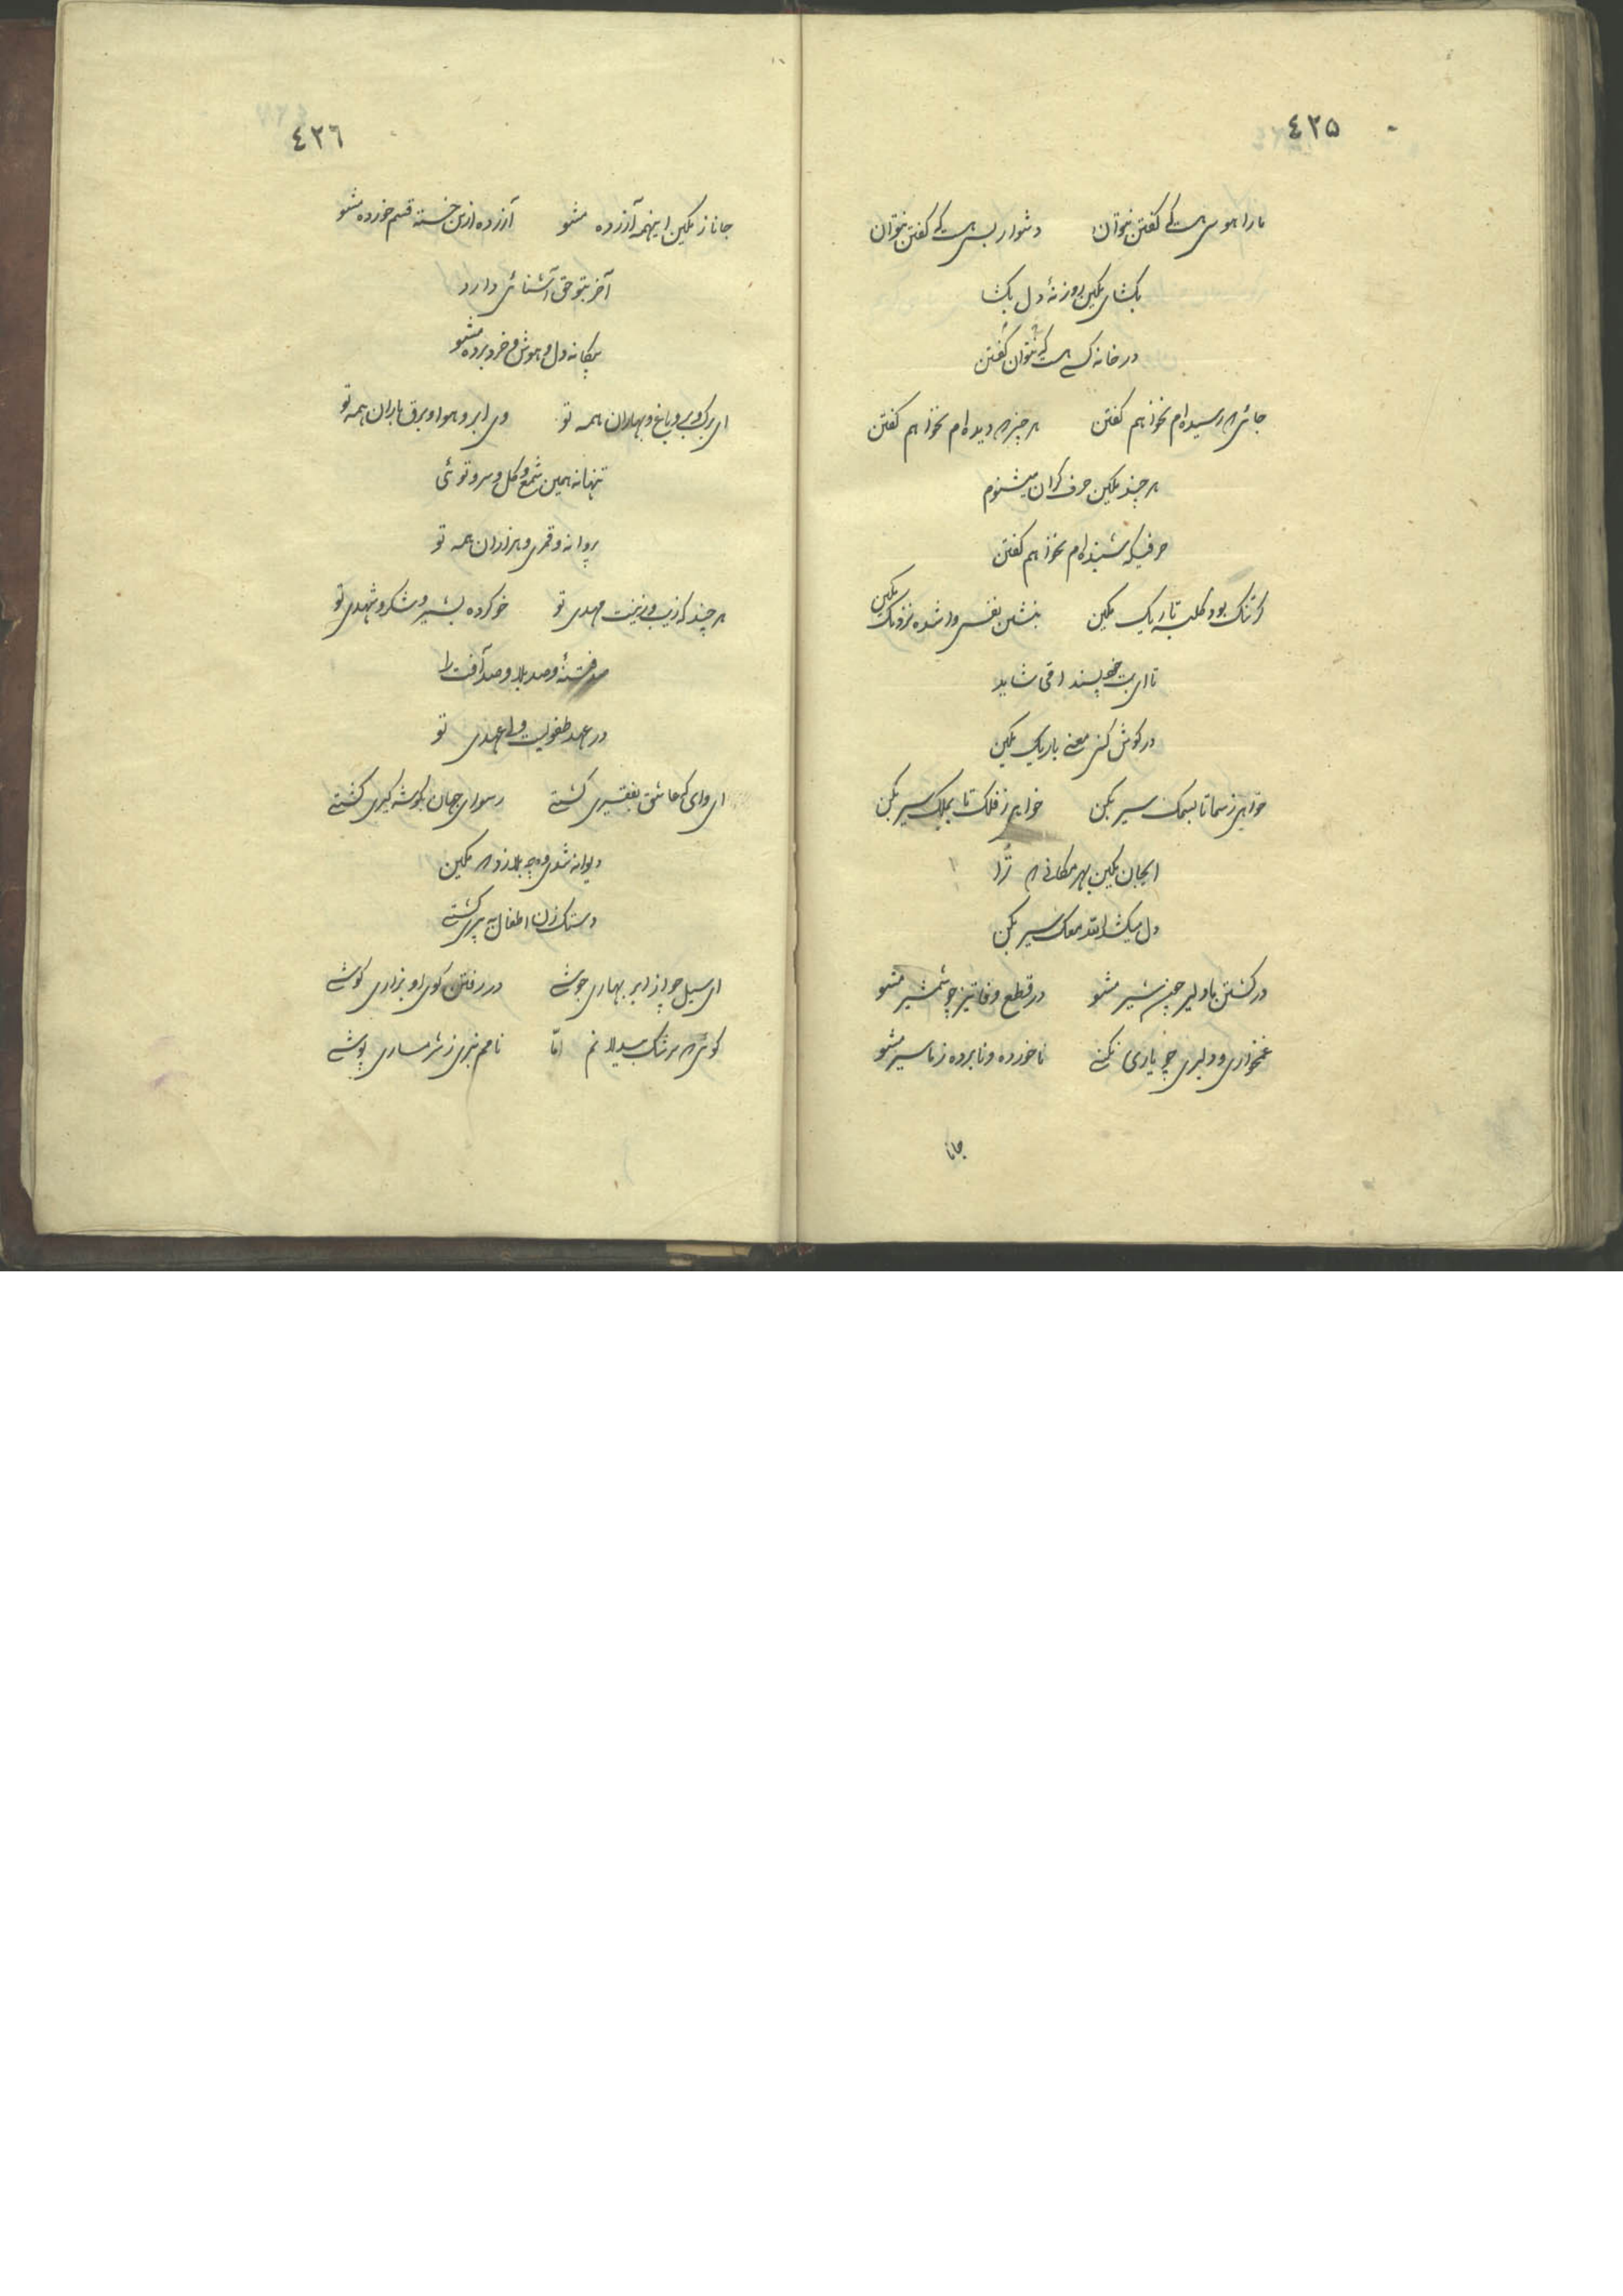 ٤٢٥
ما را هوسی هست که گفتن نتوان دشوار بسی هست که گفتن نتوان
بکشای نمکین روزنهٔ دل بکشا
در خانه کسی هست که نتوان گفتن
جائیکه رسیده‌ام نخواهم گفتن هر چیز که دیده‌ام نخواهم گفتن
هر چند نمکین حرف کران میشنوم
حرفیکه شنیده‌ام نخواهم گفتن
کر تنک بود کلبه تاریک نمکین بنشین نفسی وا شده نزدیک نمکین
تا ای بت خودپسند شاید
در کوش کنی معنی باریک نمکین
خواهی ز سما تا بسمک سیر بکن خواهی ز فلک تا بملک سیر بکن
ایجان نمکین بهر مکانی که ترا
دل میکشد سیر بکن
در کشتن ما دلیر چون شیر مشو در قطع وفا تیز چو شمشیر مشو
غمخواری و دلبری چو یاری نکنی ناخورده و نابرده ز ما سیر مشو
جانا
٤٢٦
جانا ز نمکین اینهمه آزرده مشو آزرده ازین خسته قسم خورده مشو
آخر بتو حق آشنائی دارد
بیکانه دل و هوش و خرد برده مشو
ای برک و بر و باغ و بهاران همه تو وی ابر و هوا و برق و باران همه تو
تنها نه همین شمع و کل و سرو توئی
پروانه و قمری و هزاران همه تو
هر چند که زیب و زینت مهدی تو خو کرده بشیر و شکر و شهدی تو
صد فتنهٔ و صد بلا و صد آفت را
در عهد طفولیت ولی عهدی تو
ای وای که عاشق بفقیری کشتی رسوای جهان بکوشه کیری کشتی
دیوانه شوی چه بلا زد که نمکین
دستک زن اطفال به پیری کشتی
ای سیل چو از ابر بهاری جوشی در رفتن کوی او بزاری کوشی
کوئی که سرشک بیدلانم امّا نامم نبری ز شرمساری پوشی